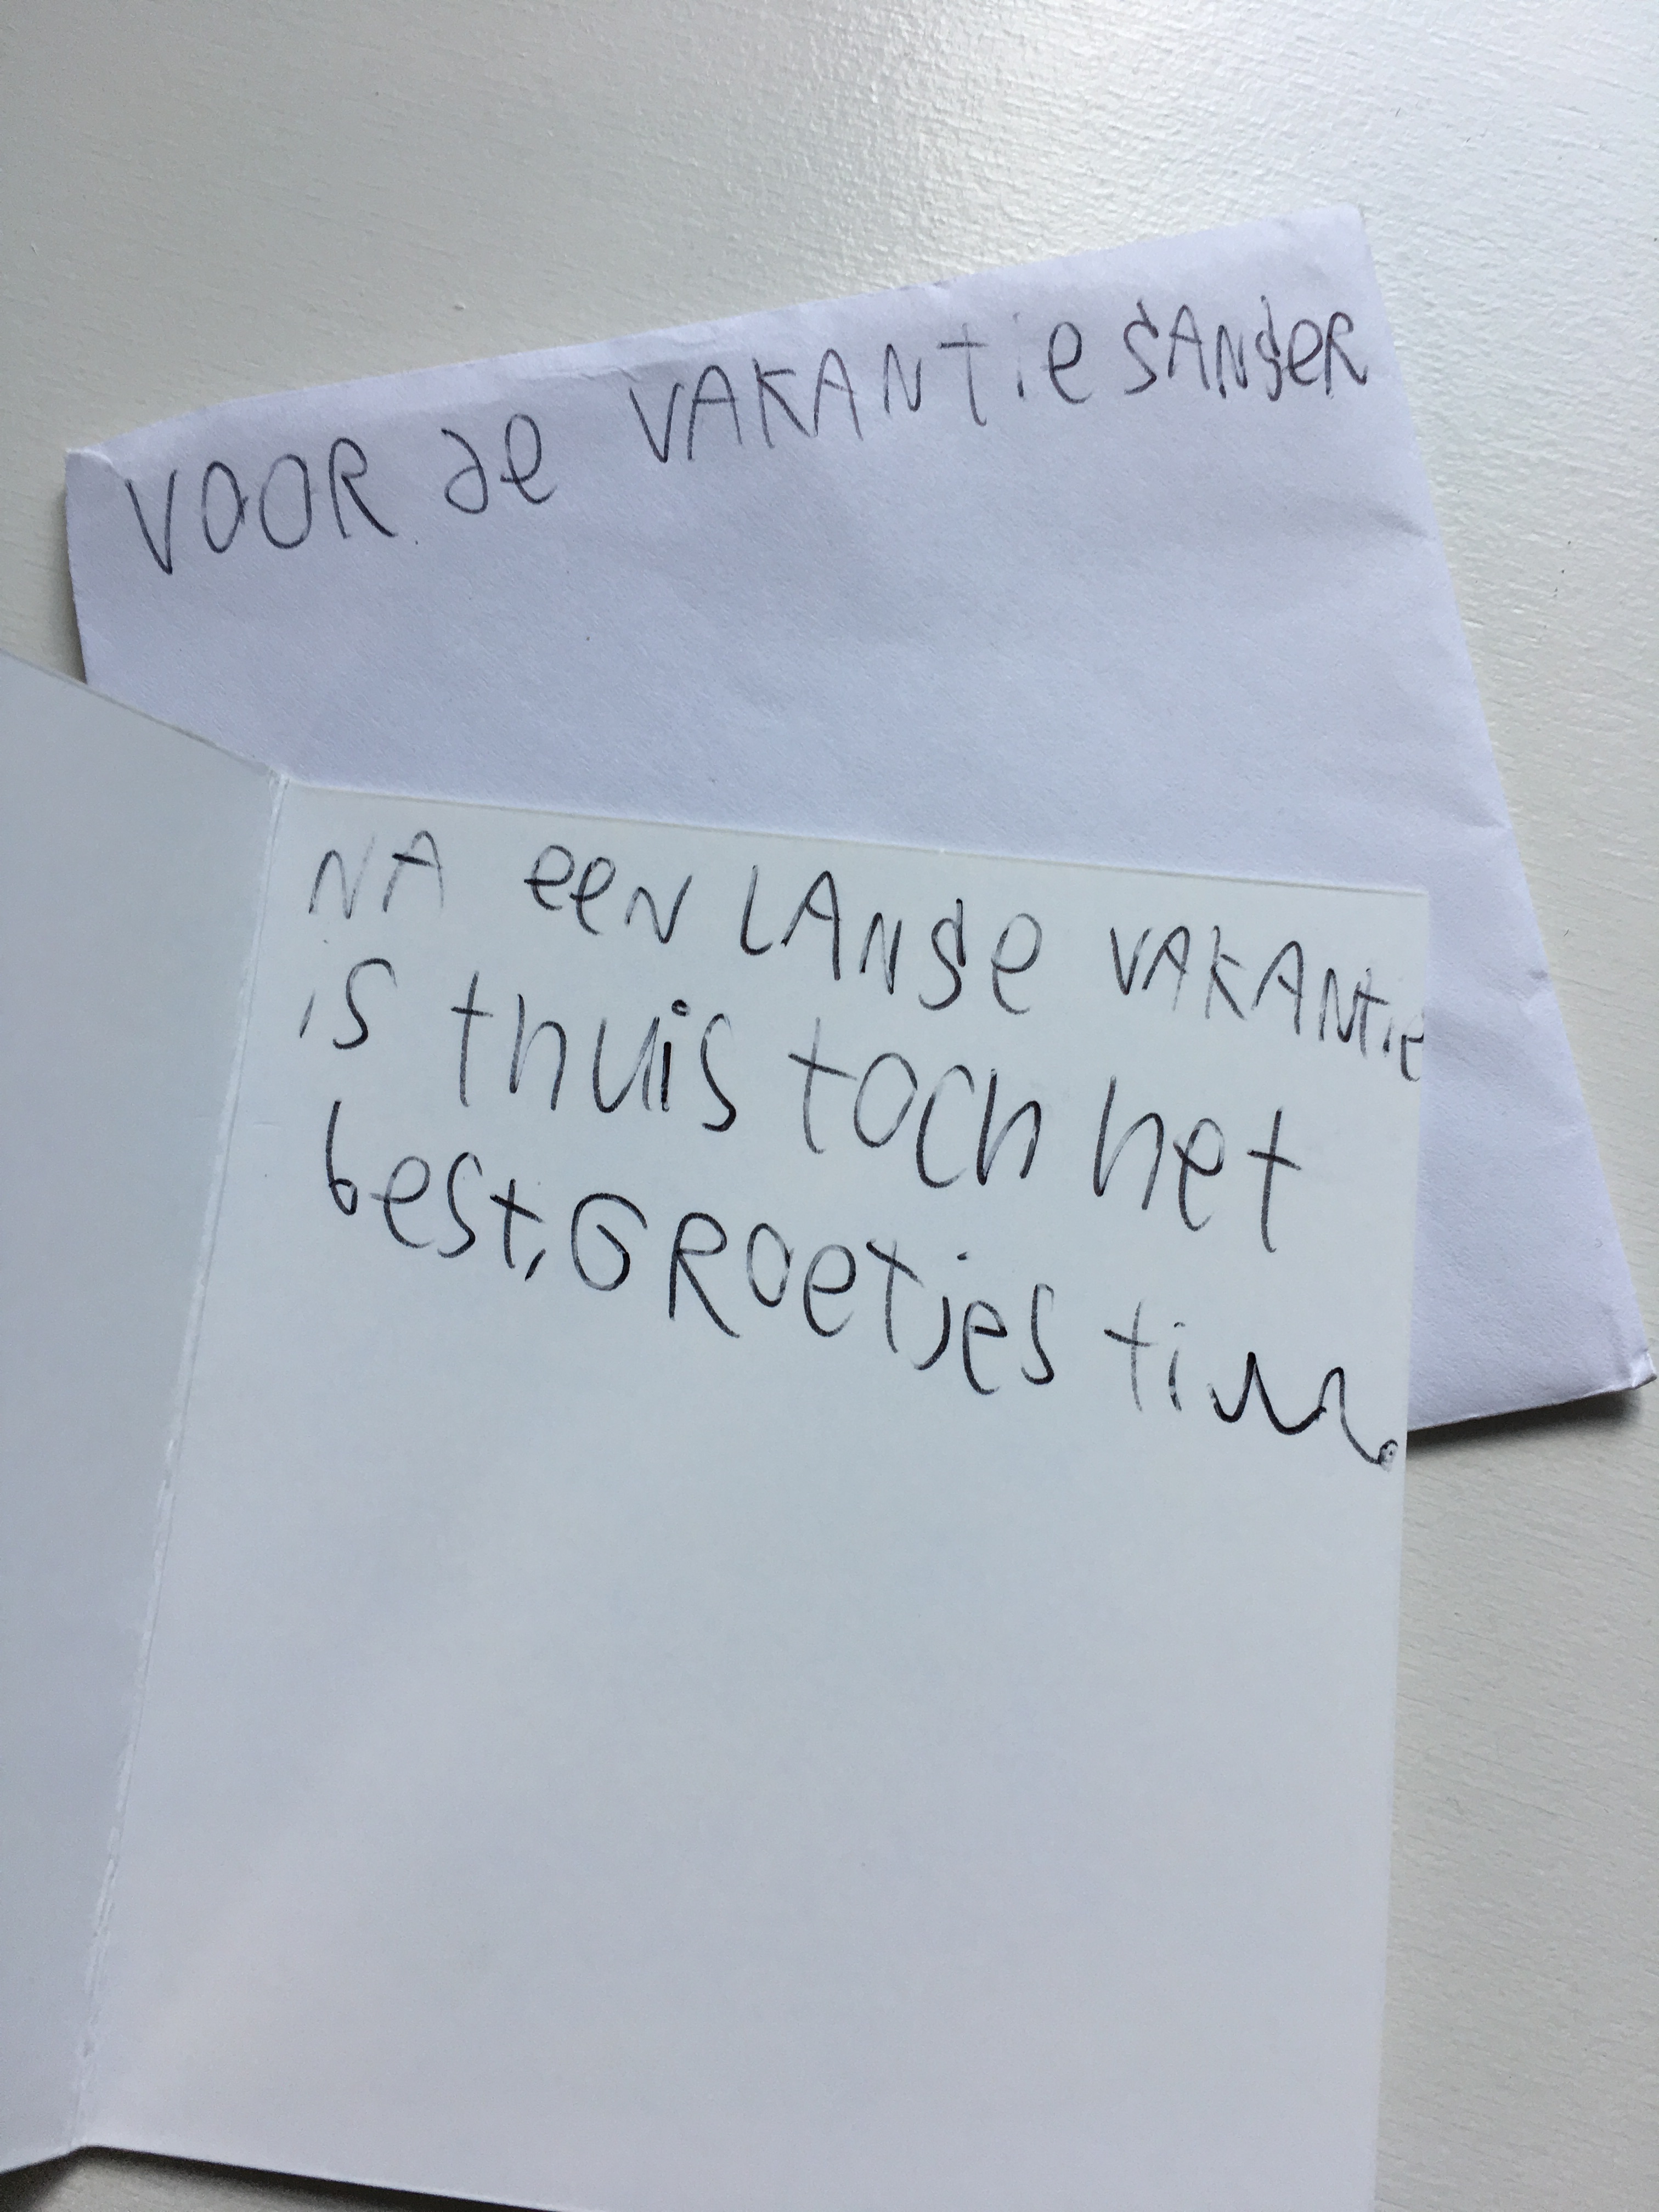 VOOR de VAKANTieGANGeR
NA eeN LANGe VAKANtie
is thuis toch het
best, GRoetjes tim.